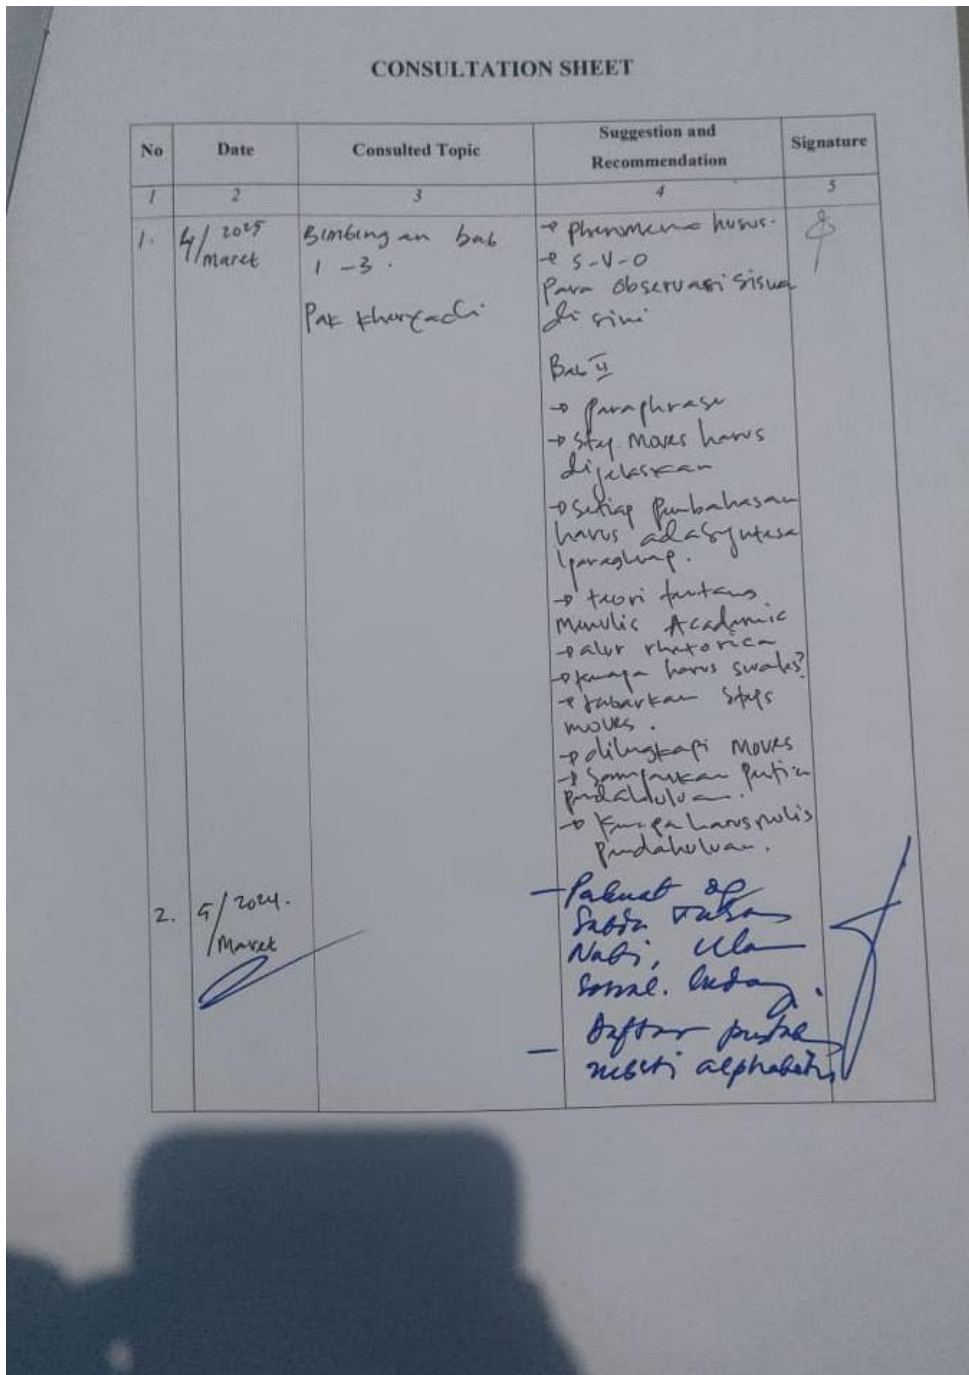 CONSULTATION SHEET
No Date Consulted Topic Suggestion and Recommendation Signature
1 2 3 4 5
1. 4/2025 maret
Bimbingan bab
1 - 3.
Pak
→ phenomena husus.
→ S-V-O
Para observasi siswa
di sini
Bab II
→ paraphrase
→ Step Moves harus
dijelaskan
→ Setiap pembahasan
harus ada
→ teori tentang
Menulis Academic
→ alur rhetorica
→ kenapa harus swales?
→ jabarkan Steps
moves.
→ dilengkapi Moves
→ Sampaikan
pendahuluan.
→ Kenapa harus nulis
pendahuluan.
2. 5/2024. Maret
- Perkuat dg
Sabda Tuhan
Nabi, Ulama
- Daftar pustaka
mesti alphabetis